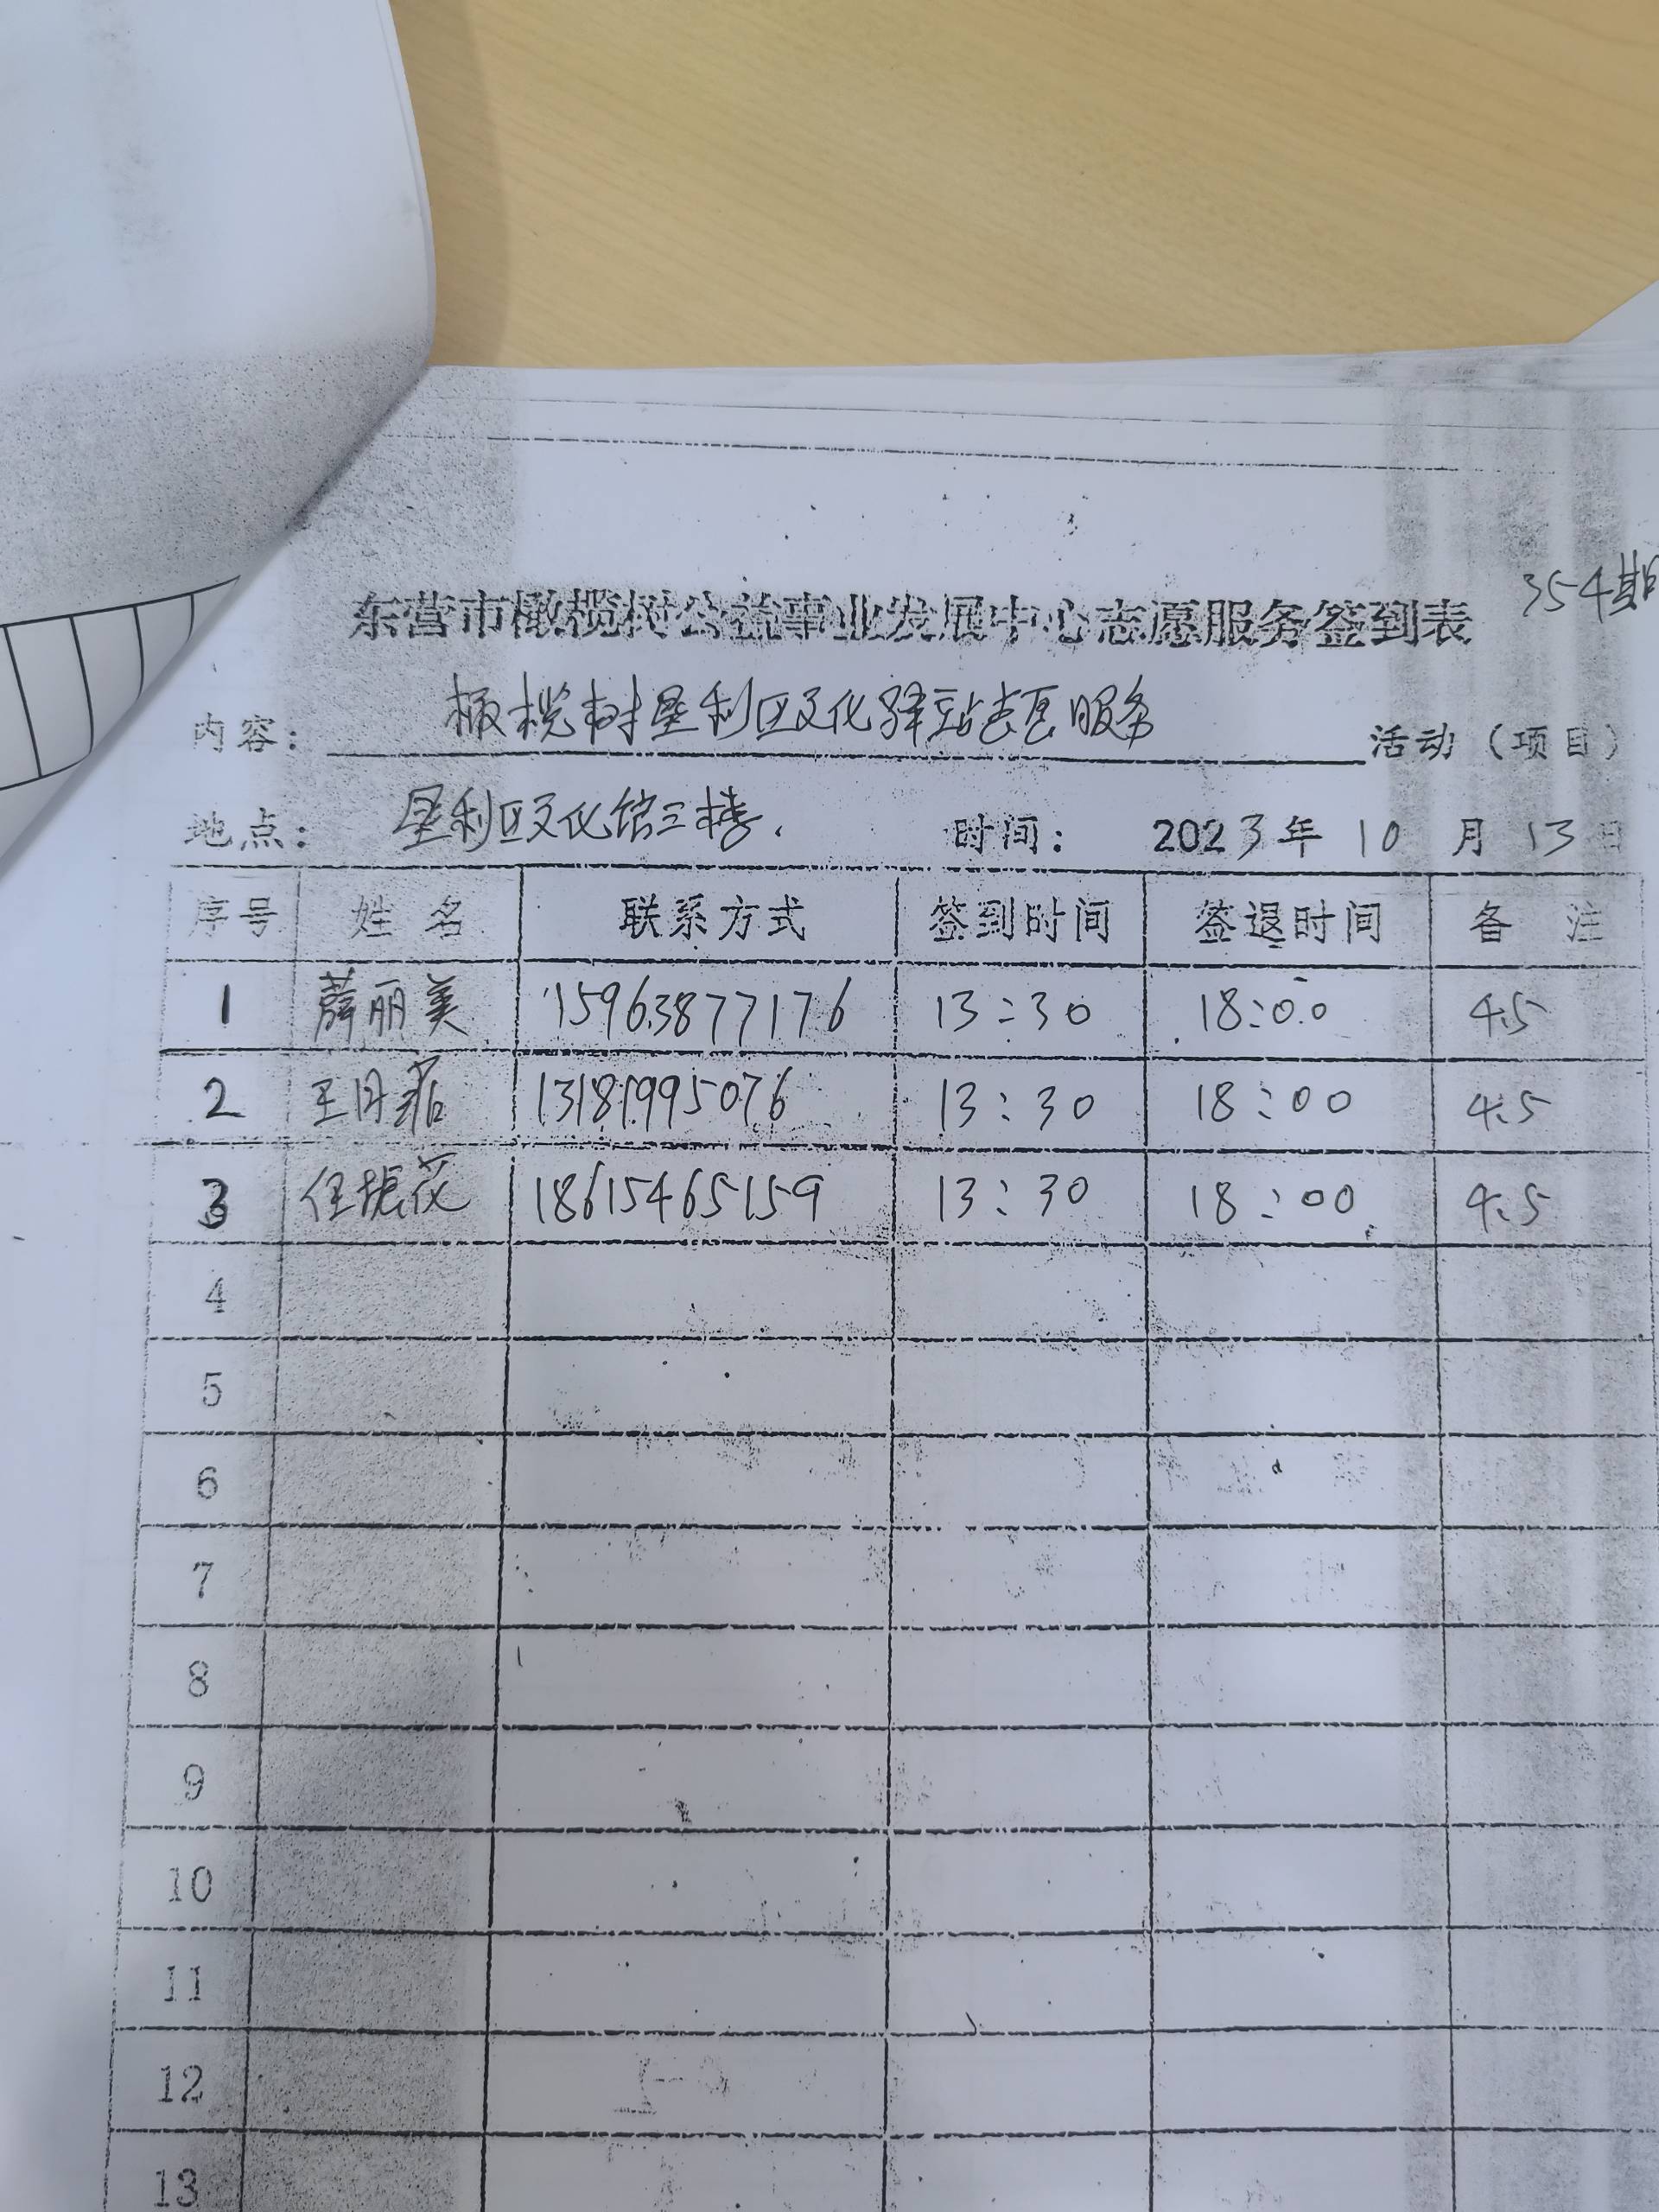 354期
东营市橄榄树公益事业发展中心志愿服务签到表
内容: 橄榄树垦利区文化驿站志愿服务 活动(项目)
地点: 垦利区文化馆三楼. 时间: 2023年 10 月 13日
序号 姓 名 联系方式 签到时间 签退时间 备 注
1 薛丽美 15963877176 13:30 18:00 4.5
2 王月 13181995076 13:30 18:00 4.5
3 任振花 18615465159 13:30 18:00 4.5
4
5
6
7
8
9
10
11
12
13